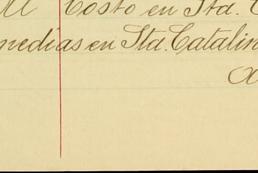 Costo en Sta. C
medias en Sta. Catalin